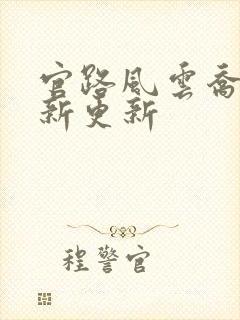 官路風雲喬
新更新
程警官